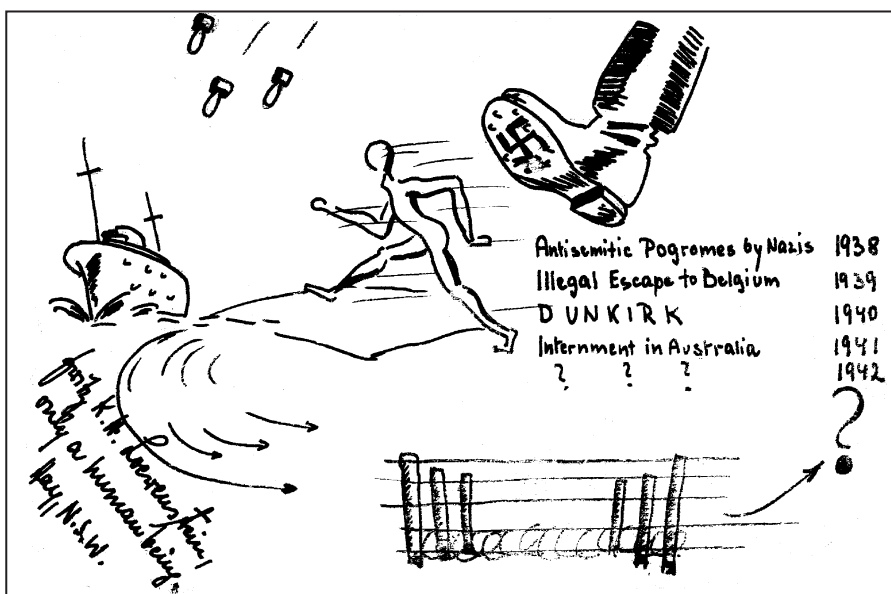 Antisemitic Pogromes by Nazis 1938
Illegal Escape to Belgium 1939
DUNKIRK 1940
Internment in Australia 1941
? ? ? 1942
?
K. H.
only a human being.
Hay, N.S.W.